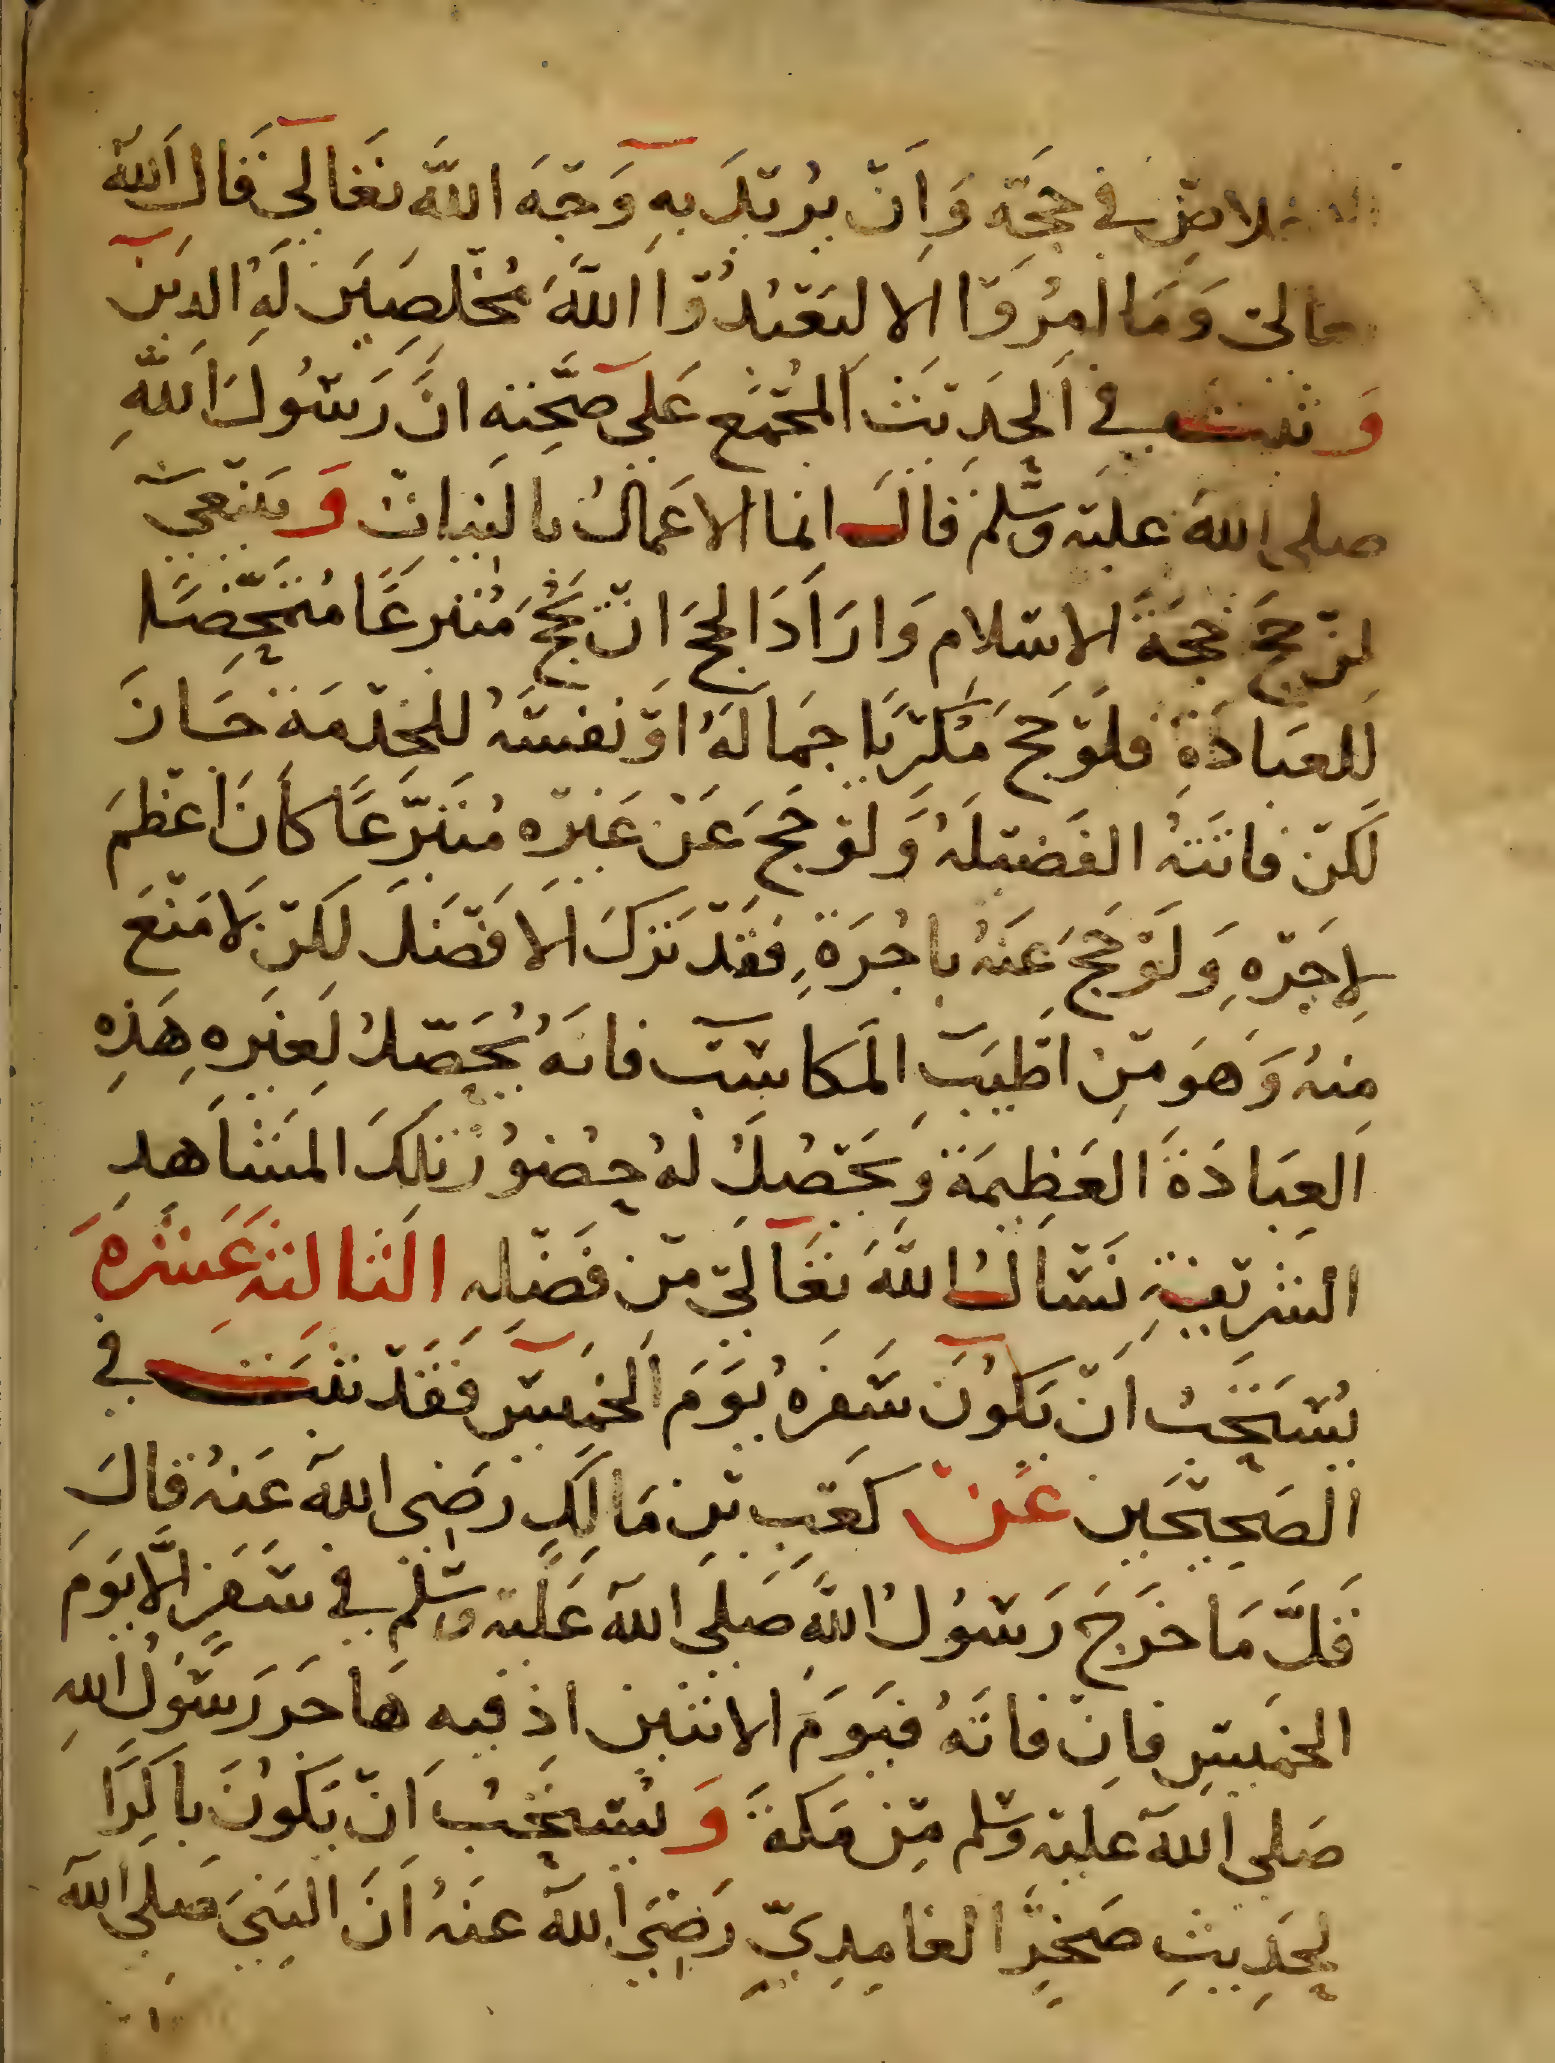 الاخلاص في حجه وان يريد به وجه الله تعالى قال الله
تعالى وما امروا الا ليعبدوا الله مخلصين له الدين
وثبت في الحديث المجمع على صحته ان رسول الله
صلى الله عليه وسلم قال انما الاعمال بالنيات وينبغي
لمن حج حجة الاسلام واراد الحج ان يحج متبرعا متمحضا
للعبادة فلو حج مكريا جماله او نفسه للخدمة جاز
لكن فاتته الفضيلة ولو حج عن غيره متبرعا كان اعظم
لاجره ولو حج عنه باجرة فقد ترك الافضل لكن لا منع
منه وهو من اطيب المكاسب فانه يحصل لغيره هذه
العبادة العظيمة ويحصل له حضور تلك المشاهد
الشريفة نسال الله تعالى من فضله الثالثة عشرة
يستحب ان يكون سفره يوم الخميس فقد ثبت في
الصحيحين عن كعب بن مالك رضي الله عنه قال
قل ما خرج رسول الله صلى الله عليه وسلم في سفر الا يوم
الخميس فان فاته فيوم الاثنين اذ فيه هاجر رسول الله
صلى الله عليه وسلم من مكة ويستحب ان يكون باكرا
لحديث صخر الغامدي رضي الله عنه ان النبي صلى الله